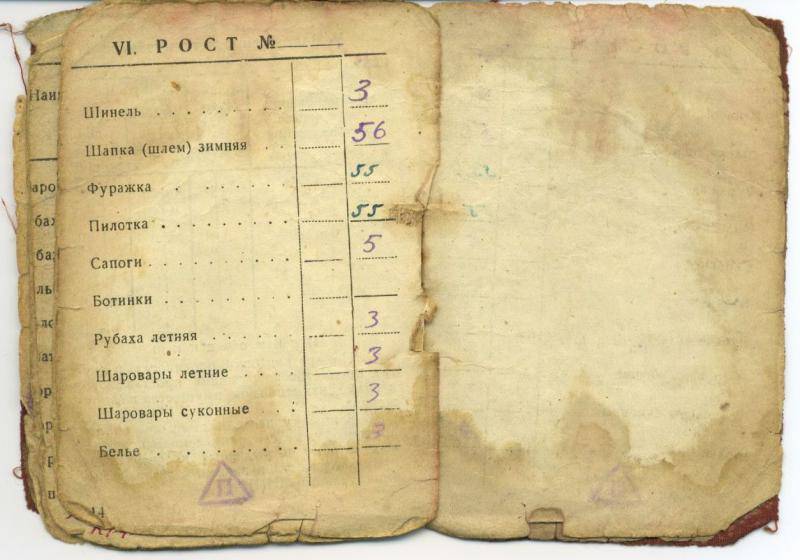 VI. РОСТ №
Шинель 3
Шапка (шлем) зимняя 56
Фуражка 55
Пилотка 55
Сапоги 5
Ботинки
Рубаха летняя 3
Шаровары летние 3
Шаровары суконные 3
Белье 3
П
14